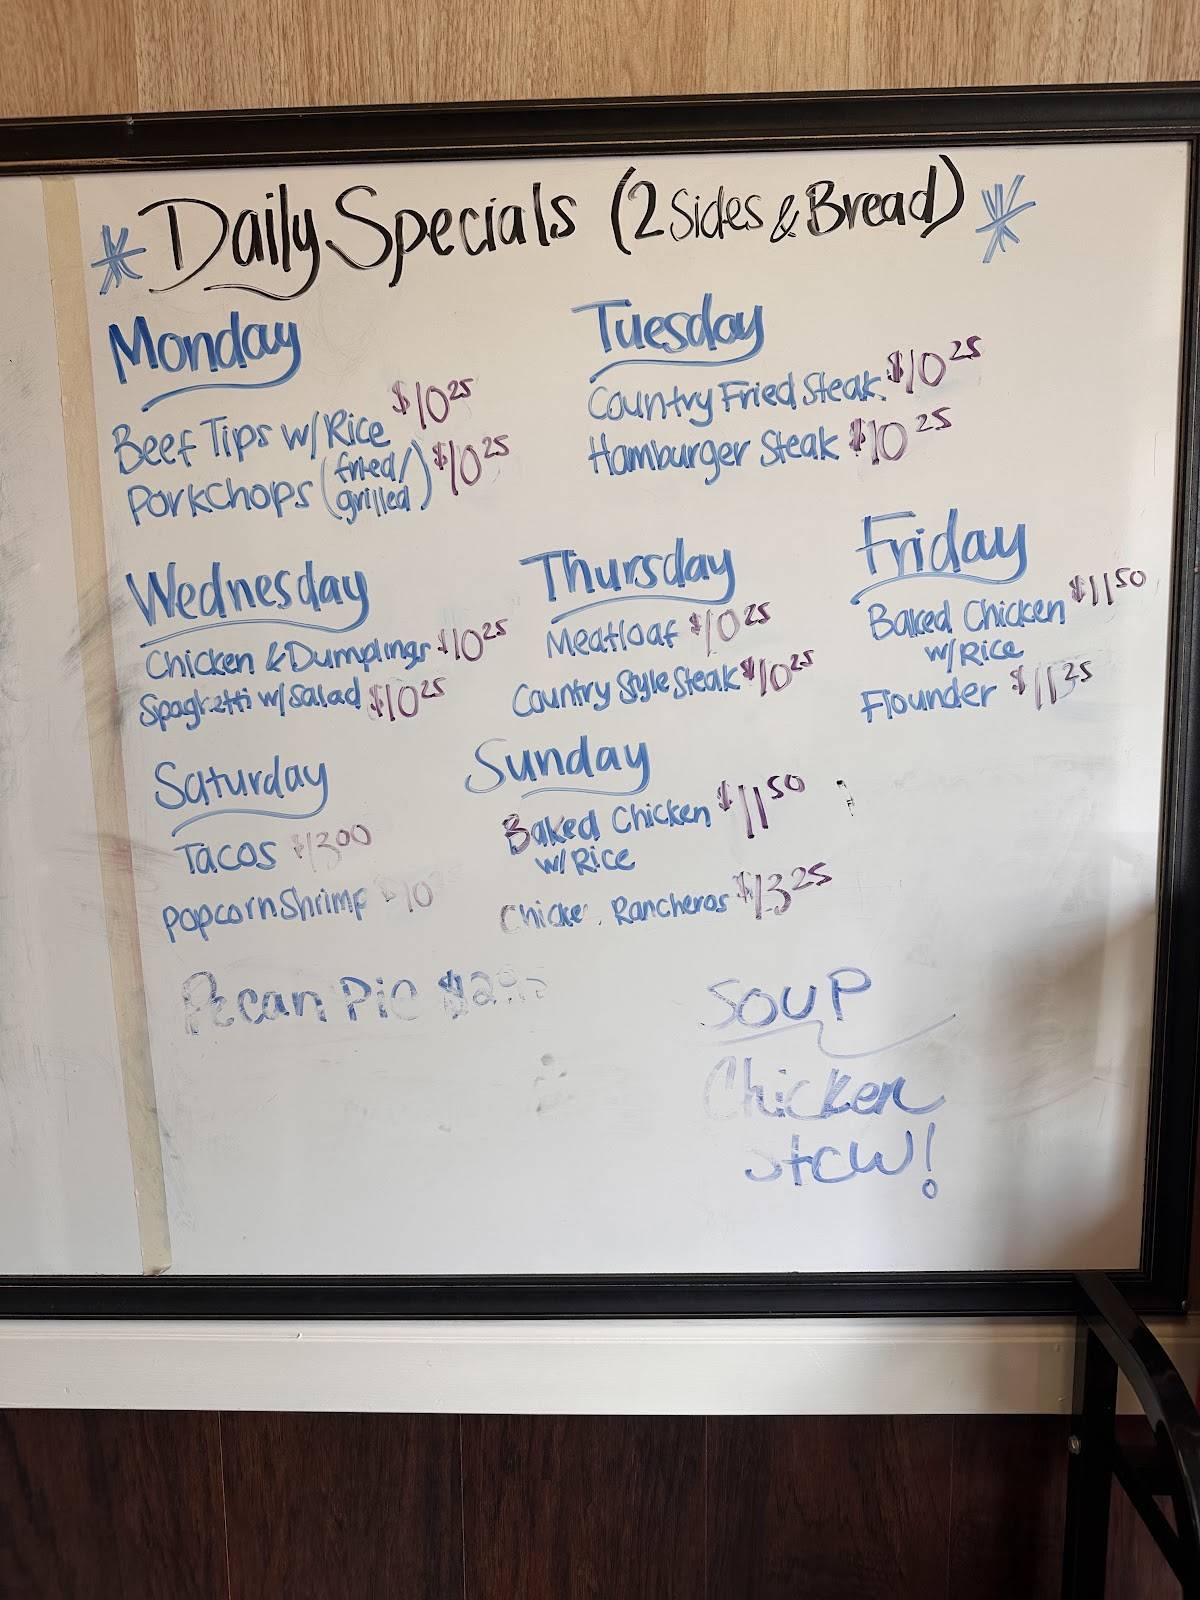 * Daily Specials (2 Sides & Bread) *
Monday
Beef Tips w/ Rice $10.25
Porkchops (fried/grilled) $10.25
Tuesday
Country Fried Steak $10.25
Hamburger Steak $10.25
Wednesday
Chicken & Dumplings $10.25
Spaghetti w/ Salad $10.25
Thursday
Meatloaf $10.25
Country Style Steak $10.25
Friday
Baked Chicken $11.50
w/ Rice
Flounder $11.25
Saturday
Tacos $13.00
Popcorn Shrimp $10
Sunday
Baked Chicken $11.50
w/ Rice
Chicken Rancheros $13.25
Pecan Pie
Soup
Chicken
Stew!